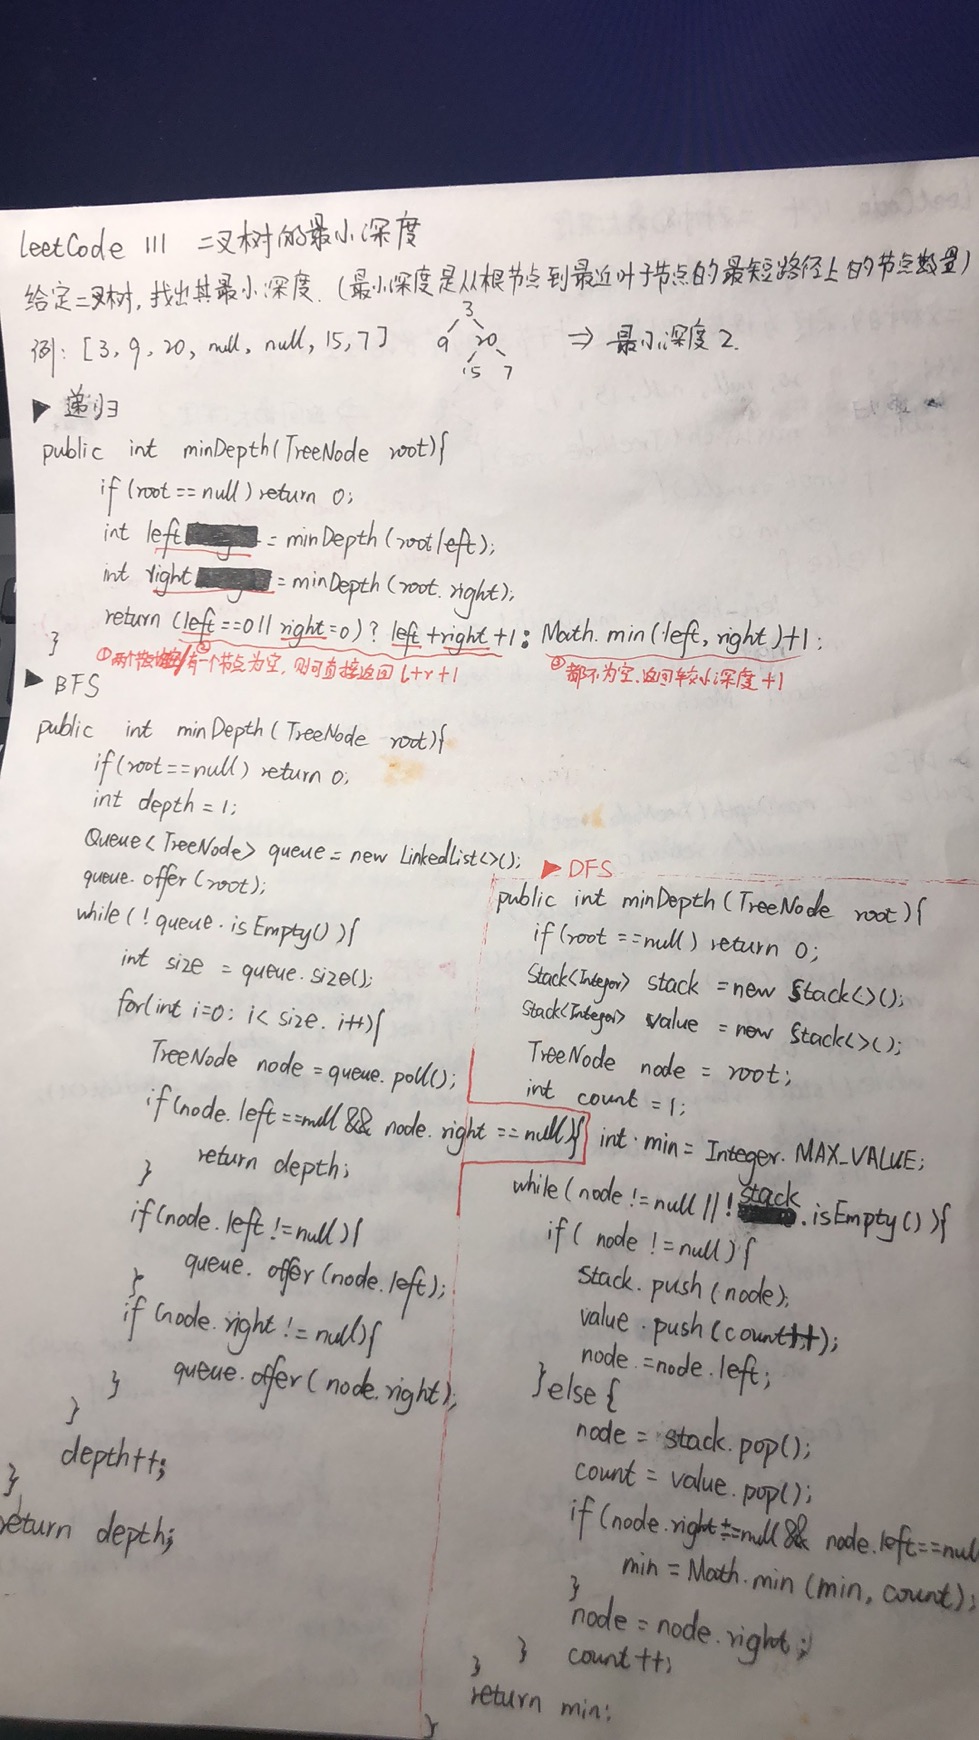 leetCode 111 二叉树的最小深度
给定二叉树, 找出其最小深度. (最小深度是从根节点到最近叶子节点的最短路径上的节点数量)
例: [3, 9, 20, null, null, 15, 7]
3
9 20
15 7
⇒ 最小深度 2.
▶ 递归
public int minDepth(TreeNode root){
if (root == null) return 0;
int left = minDepth(root.left);
int right = minDepth(root.right);
return (left==0 || right=0) ? left+right+1 : Math.min(left, right)+1;
}
① 两个节点 / ② 有一个节点为空, 则可直接返回 l+r+1
③ 都不为空, 返回较小深度+1
▶ BFS
public int minDepth(TreeNode root){
if(root==null) return 0;
int depth = 1;
Queue<TreeNode> queue = new LinkedList<>();
queue.offer(root);
while(!queue.isEmpty()){
int size = queue.size();
for(int i=0; i< size. i++){
TreeNode node = queue.poll();
if(node.left==null && node.right == null){
return depth;
}
if(node.left != null){
queue.offer(node.left);
}
if(node.right != null){
queue.offer(node.right);
}
}
depth++;
}
return depth;
▶ DFS
public int minDepth(TreeNode root){
if(root ==null) return 0;
Stack<Integer> stack = new Stack<>();
Stack<Integer> value = new Stack<>();
TreeNode node = root;
int count = 1;
int min = Integer.MAX_VALUE;
while(node != null || !stack.isEmpty()){
if( node != null){
stack.push(node);
value.push(count++);
node.=node.left;
}else{
node = stack.pop();
count = value.pop();
if(node.right==null && node.left==null
min = Math.min(min, count);
}
node = node.right;
count++;
}
}
return min;
}